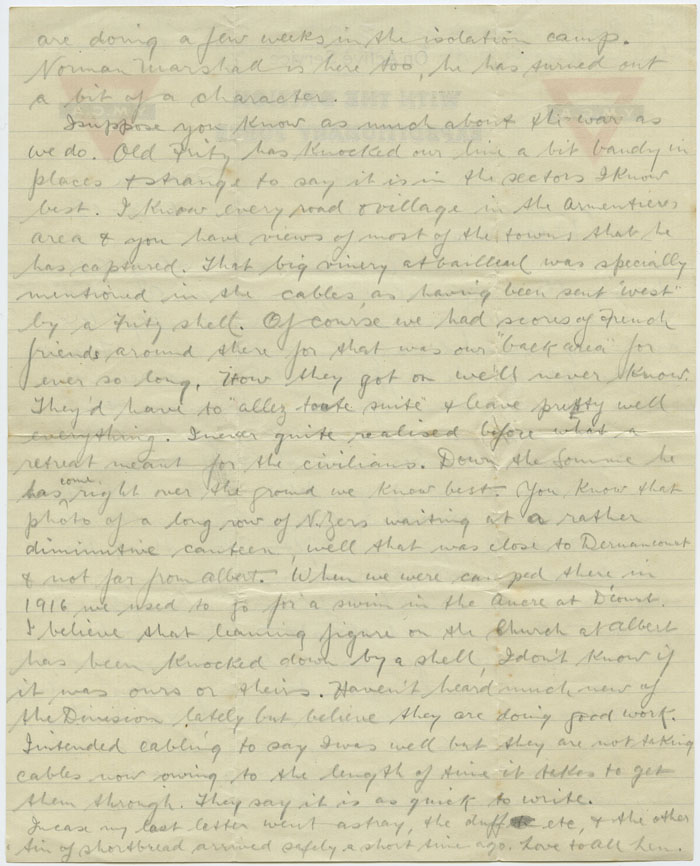 are doing a few weeks in the isolation camp.
Norman Marshall is here too, he has turned out
a bit of a character.
I suppose you know as much about this war as
we do. Old Fritz has knocked our line a bit bandy in
places & strange to say it is in the sectors I know
best. I know every road & village in the Armentieres
area & you have views of most of the towns that he
has captured. That big vinery at Bailleul was specially
mentioned in the cables, as having been sent "west"
by a Fritz shell. Of course we had scores of French
friends around there for that was our "back area" for
ever so long. How they got on we'll never know.
They'd have to "allez toute suite" & leave pretty well
everything. I never quite realised before what a
retreat meant for the civilians. Down the Somme he
has come right over the ground we know best. You know that
photo of a long row of N.Zers waiting at a rather
diminutive canteen, well that was close to Dernancourt
& not far from Albert. When we were camped there in
1916 we used to go for a swim in the Ancre at D'court.
I believe that leaning figure on the Church at Albert
has been knocked down by a shell, I don't know if
it was ours or theirs. Haven't heard much new of
the Division lately but believe they are doing good work.
I intended cabling to say I was well but they are not taking
cables now owing to the length of time it takes to get
them through. They say it is as quick to write.
In case my last letter went astray, the duff etc, & the other
tin of shortbread arrived safely a short time ago. Love to All